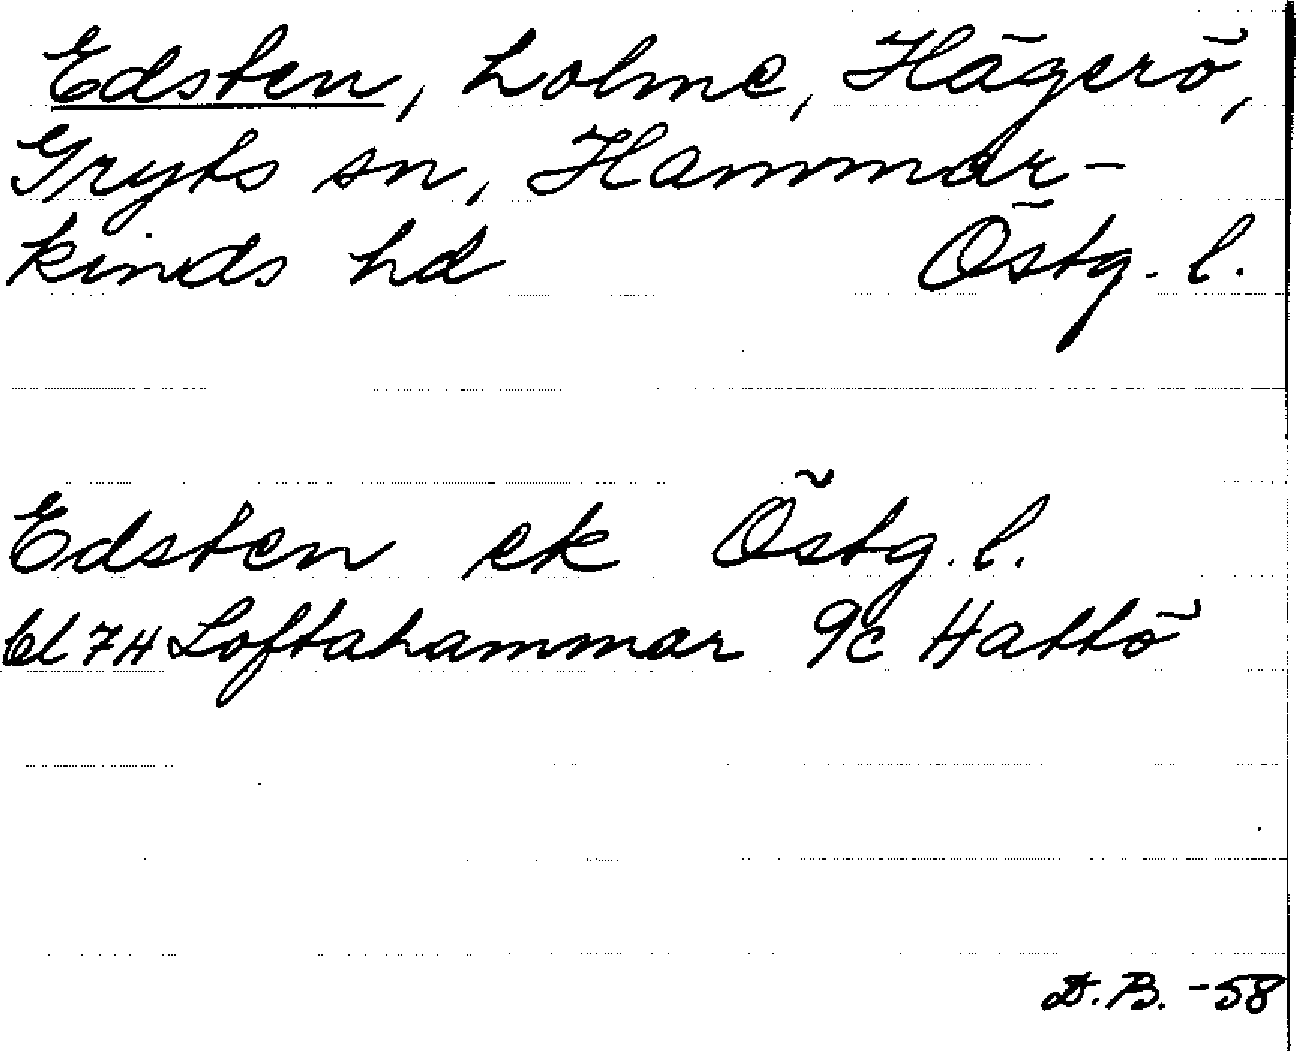 Edsten, holme, Hägerö,
Gryts sn, Hammar-
kinds hd Östg. l.
Edsten ek Östg. l.
bl 7H Loftahammar 9c Hattö
D.B. -58